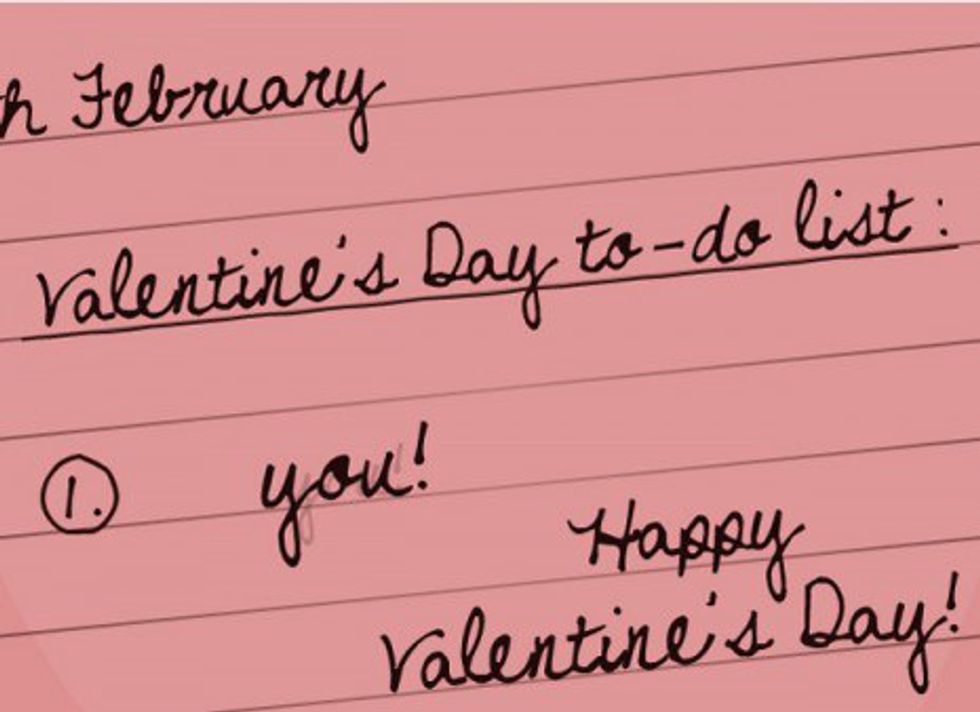 h February
Valentine's Day to-do list:
1. you!
Happy
Valentine's Day!